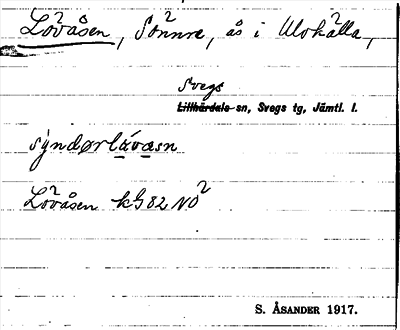 Lövåsen, Sönnre, ås i Ulvkälla,
Svegs
Lillhärdals sn, Svegs tg, Jämtl. l.
syndørlåvæsn
Lövåsen kG 82 NO
S. ÅSANDER 1917.